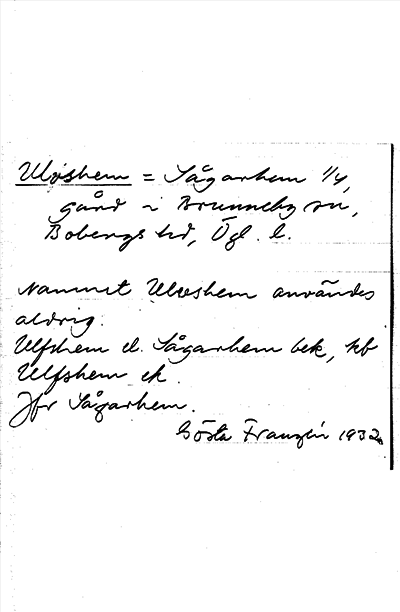 Ulvshem = Sågarhem 1/4,
gård i Brunneby sn,
Bobergs hd, Ögl. l.
Namnet Ulvshem användes
aldrig.
Ulfshem el. Sågarhem bek, kb
Ulfshem ek.
Jfr Sågarhem.
Gösta Franzén 1932.